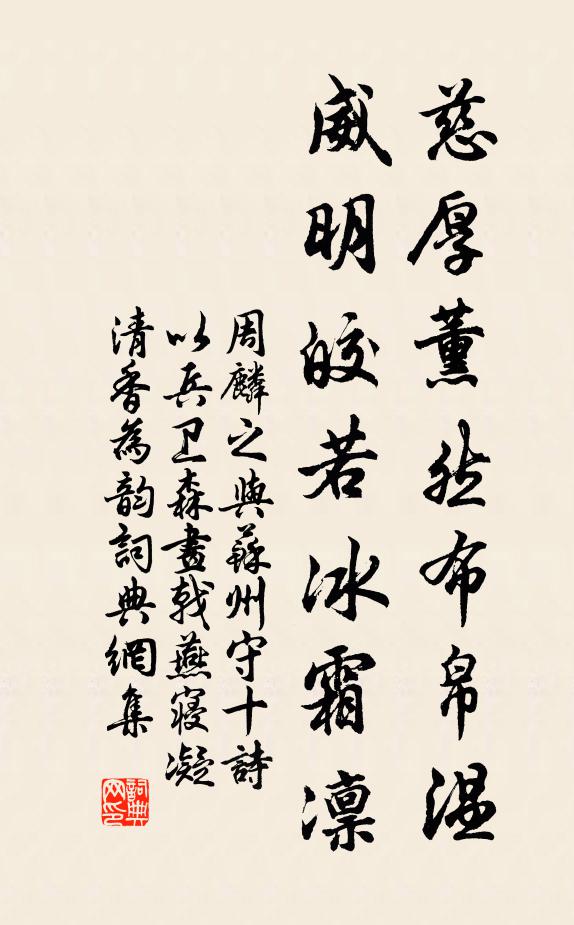 慈厚薰然布帛温
威明皎若冰霜凛
周麟之與蘇州守十詩
以兵卫森畫戟燕寢凝
清香為韵詞典網集
詞典网印